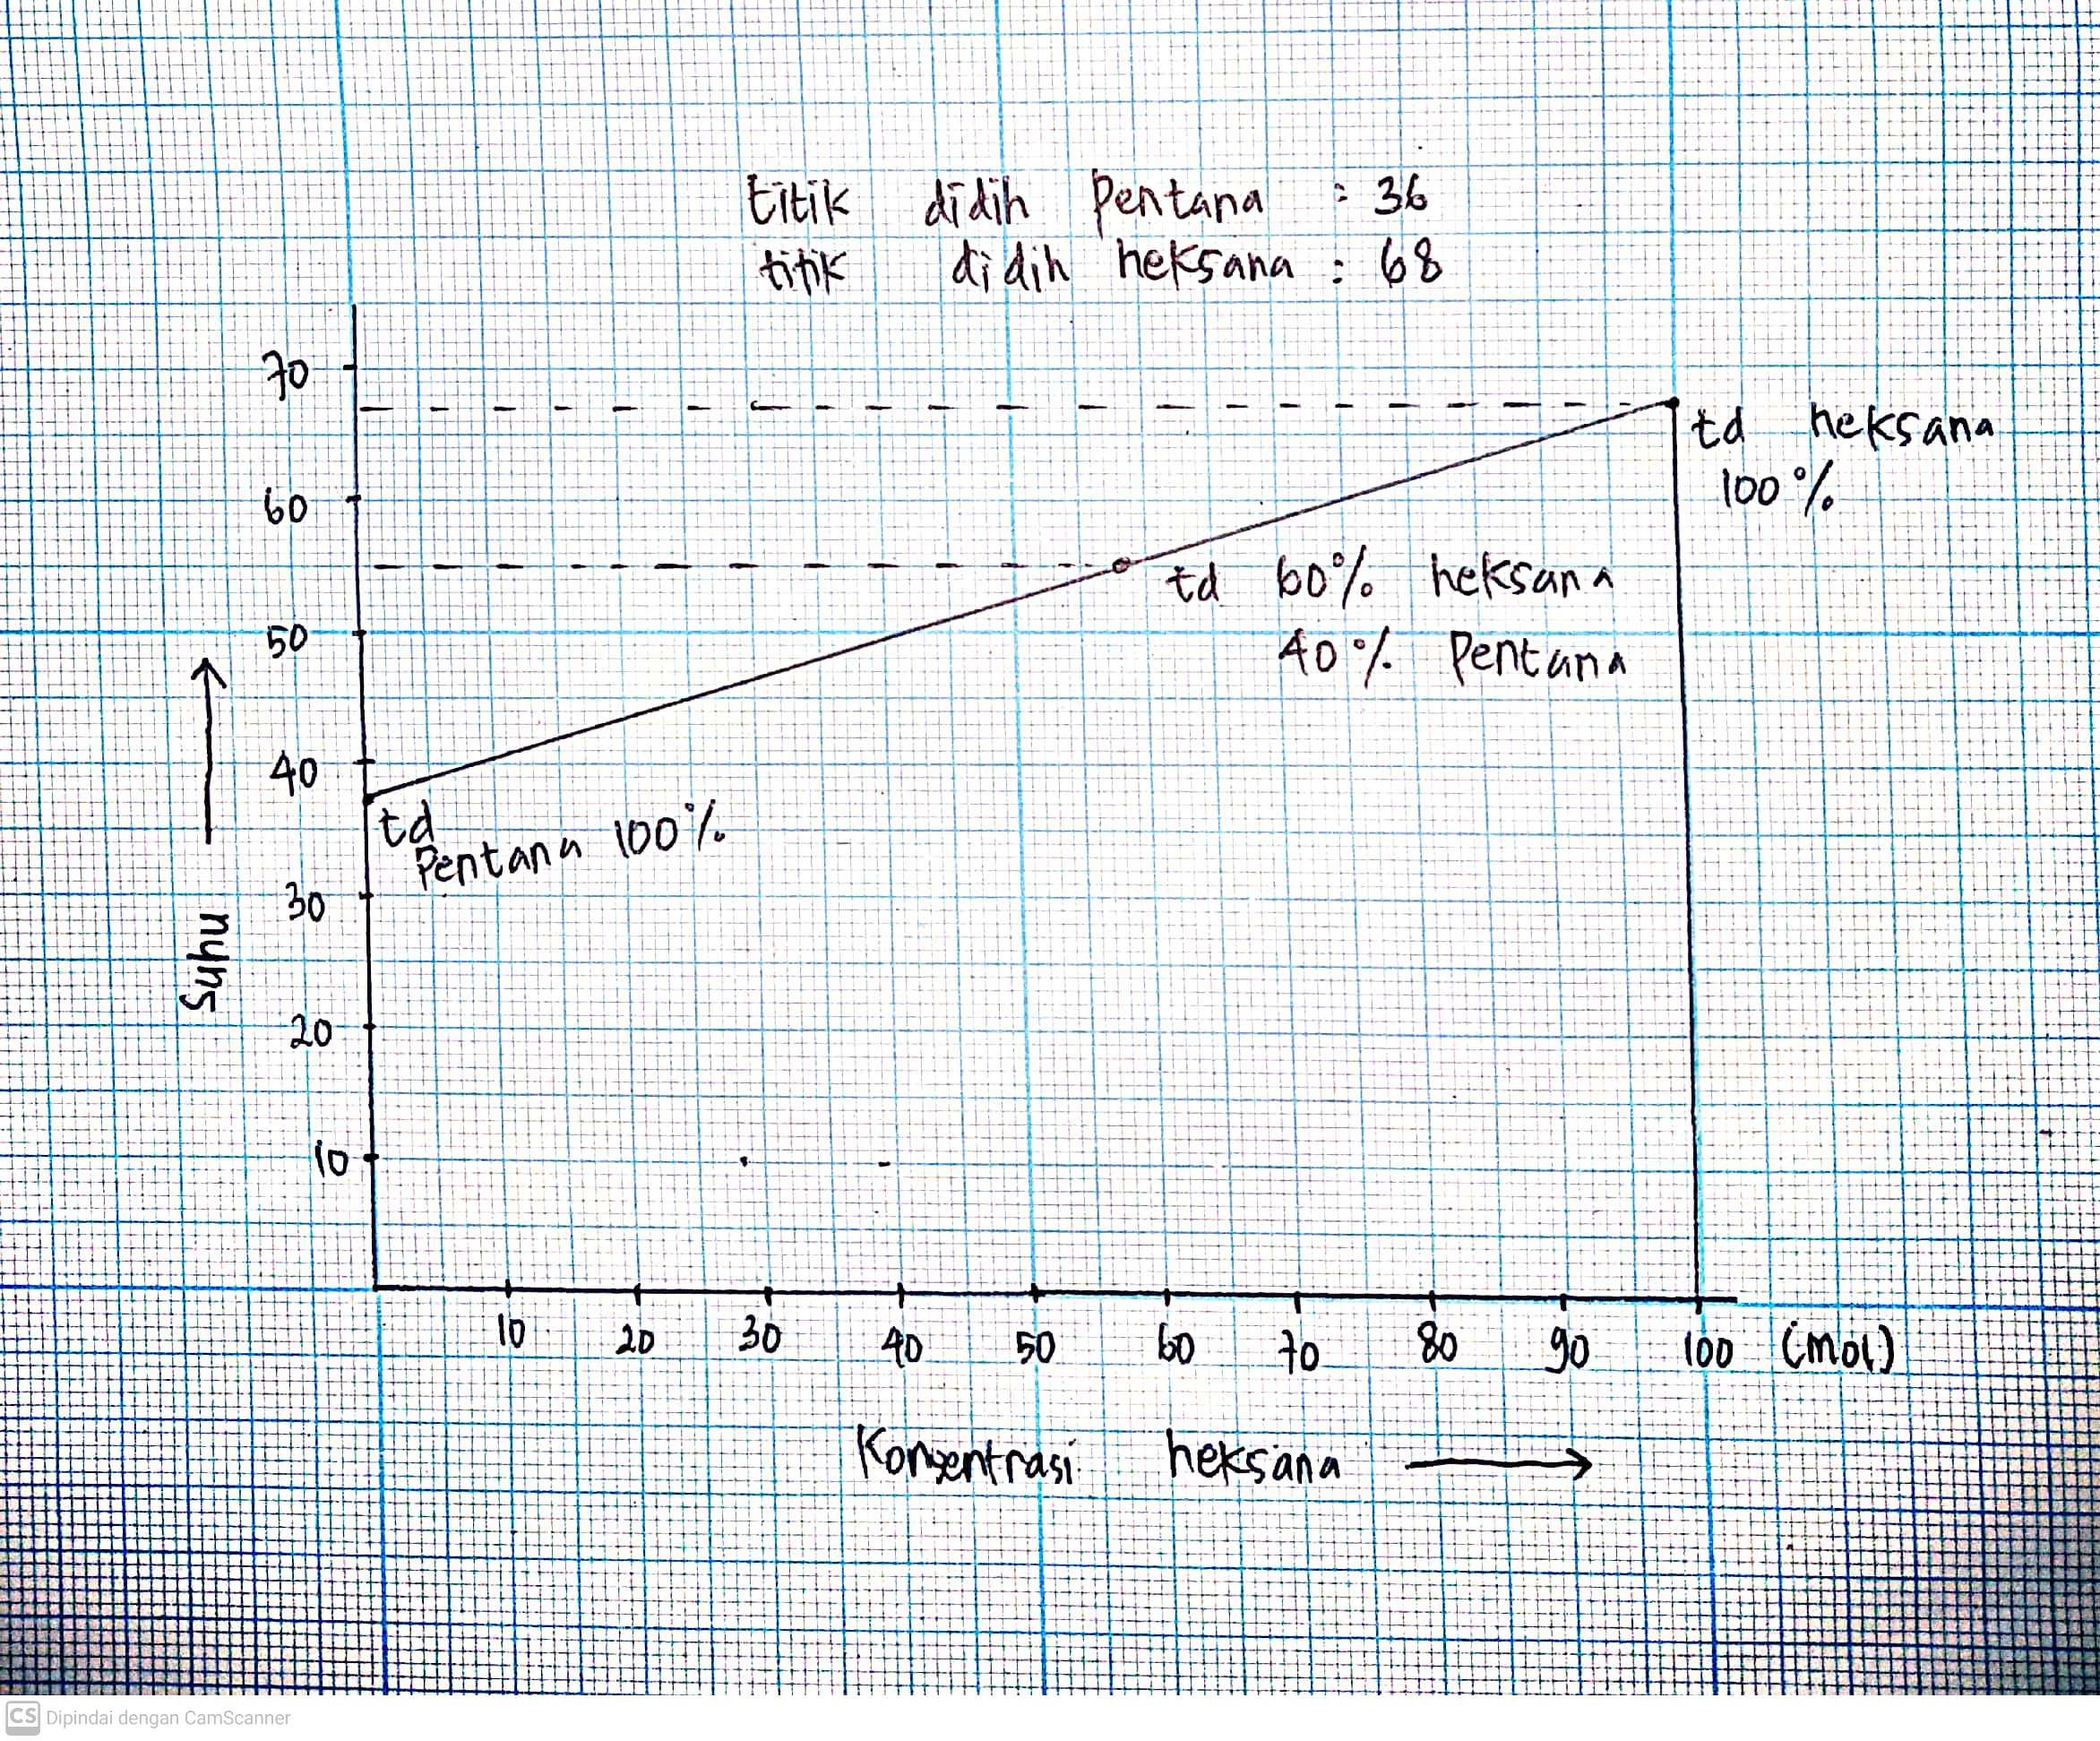 titik didih Pentana : 36
titik didih heksana : 68
70
td heksana
100%
60
td 60% heksana
40% Pentana
50
40
td
Pentana 100%
30
Suhu
20
10
10 20 30 40 50 60 70 80 90 100 (mol)
Konsentrasi heksana
CS Dipindai dengan CamScanner